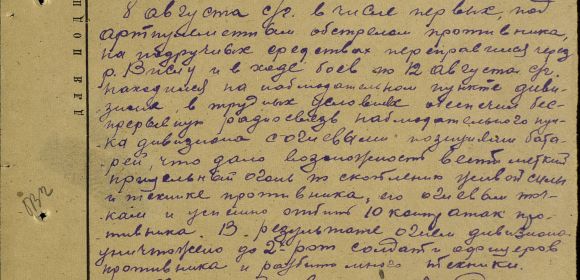 8 августа с/г. в числе первых, под
арт.пулеметным обстрелом противника,
на подручных средствах переправился через
р. Вислу и в ходе боев по 12 августа с/г.
находился на наблюдательном пункте диви-
зиона, в трудных условиях обеспечил бес-
прерывную радиосвязь наблюдательного пун-
кта дивизиона с огневыми позициями бата-
рей, что дало возможность вести меткий
прицельный огонь по скоплению живой силы
и технике противника, его огневым точ-
кам и успешно отбить 10 контратак про-
тивника. В результате огнем дивизиона
уничтожено до 2-рот солдат и офицеров
противника и разбито много техники.